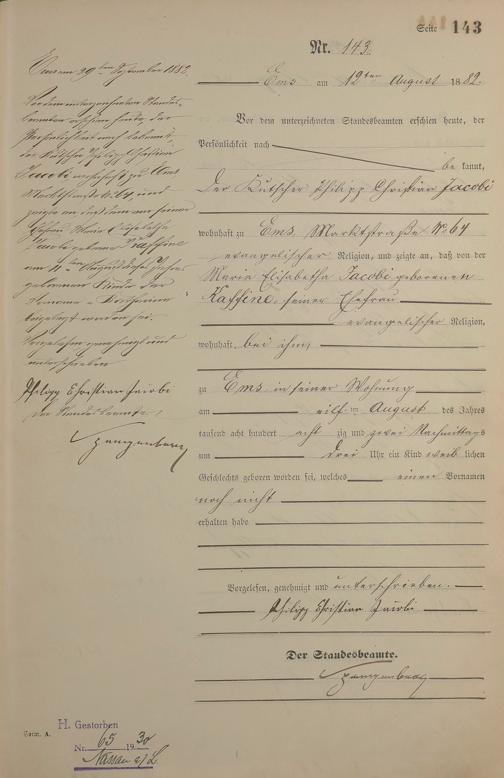 Seite 143
Nr. 143.
Ems am 12ten August 1882.
Vor dem unterzeichneten Standesbeamten erschien heute, der
Persönlichkeit nach
bekannt,
Der Kutscher Philipp Christian Jacobi
wohnhaft zu Ems, Marktstraße No 64
evangelischer Religion, und zeigte an, daß von der
Maria Elisabetha Jacobi geborenen
Kaffine, seiner Ehefrau
evangelischer Religion,
wohnhaft bei ihm,
zu Ems in seiner Wohnung
am eilften August des Jahres
tausend acht hundert achtzig und zwei Nachmittags
um drei Uhr ein Kind weiblichen
Geschlechts geboren worden sei, welches einen Vornamen
noch nicht
erhalten habe
Vorgelesen, genehmigt und unterschrieben.
Philipp Christian Jacobi
Der Standesbeamte.
Spangenberg
Ems am 29ten September 1882.
Vor dem unterzeichneten Standes-
beamten erschien heute, der
Persönlichkeit nach bekannt,
der Kutscher Philipp Christian
Jacobi wohnhaft zu Ems
Marktstraße No 64, und
zeigte an, daß dem von seiner
Ehefrau Maria Elisabetha
Jacobi geborene Kaffine
am 11ten August dieses Jahres
geborenen Kinde der
Vorname
beigelegt worden sei.
Vorgelesen genehmigt und
unterschrieben
Philipp Christian Jacobi
Der Standesbeamte,
Spangenberg
Form. A.
H. Gestorben
Nr. 65 1930
Nassau a/L.